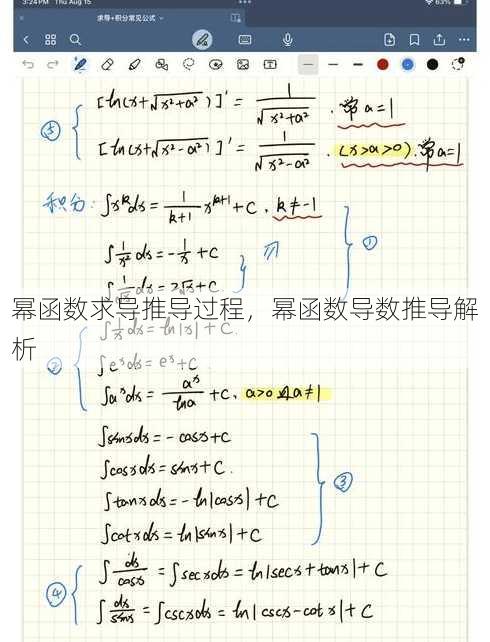 3:24 PM Thu Aug 15
63%
求导+积分常见公式
⑤ [ln(x+√x²+a²)]' = 1/√x²+a² . 常a=1
[ln(x+√x²-a²)]' = 1/√x²-a² . (x>a>0).常a=1
积分: ∫x^k dx = 1/(k+1) x^(k+1) + C , k≠-1
∫1/x² dx = -1/x + C
∫1/√x dx = 2√x + C
①
幂函数求导推导过程，幂函数导数推导解
析
② ∫1/x dx = ln|x| + C.
∫e^x dx = e^x + C
∫a^x dx = a^x/lna + C, a>0且a≠1
∫sinxdx = - cosx+C
∫cosxdx = sinx+C.
∫tanxdx = - ln|cosx| + C
∫cotxdx = ln|sinx| + C
③
④ ∫dx/cosx = ∫secxdx = ln|secx+tanx| + C
∫dx/sinx = ∫cscxdx = ln|cscx-cotx| + C